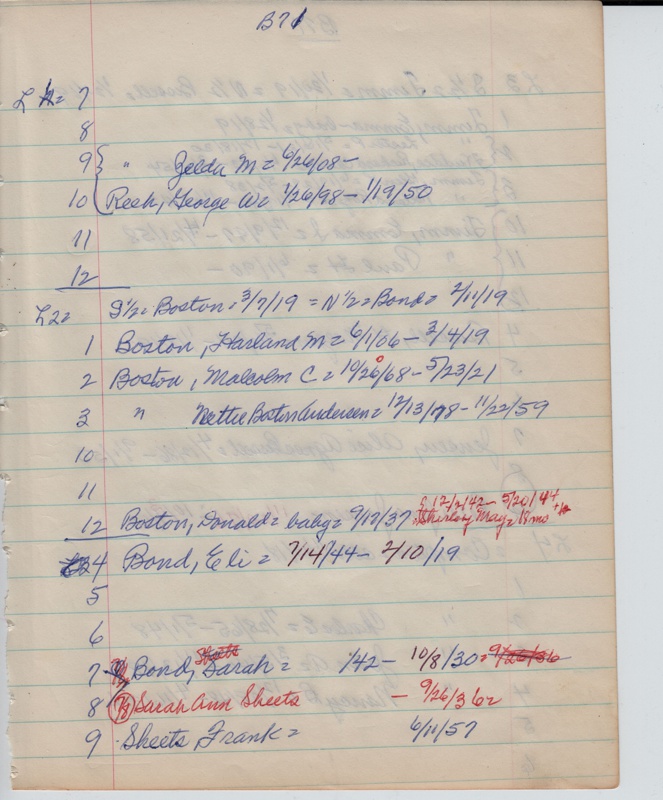 B71
L 1= 7
8
9 { " Zelda M = 6/26/08 -
10 Reek, George W = 1/26/98 - 1/19/50
11
12
L2= S½ = Boston = 3/7/19 = N½ = Bond = 2/11/19
1 Boston, Harland M = 6/1/06 - 3/4/19
2 Boston, Malcolm C = 10/26/68 - 5/23/21
3 " Nettie Boston Andersen = 12/13/78 - 11/22/59
10
11
{ 12/2/42 - 5/20/44
12 Boston, Donald = baby = 9/12/37 Shirley May = 18 mo
4 Bond, Eli = 7/14/44 - 2/10/19
5
6
Sheets
7 Bond, Sarah = /42 - 10/8/30 = 9/26/36
8 7/8 Sarah Ann Sheets - 9/26/36
9 Sheets, Frank = 6/11/57